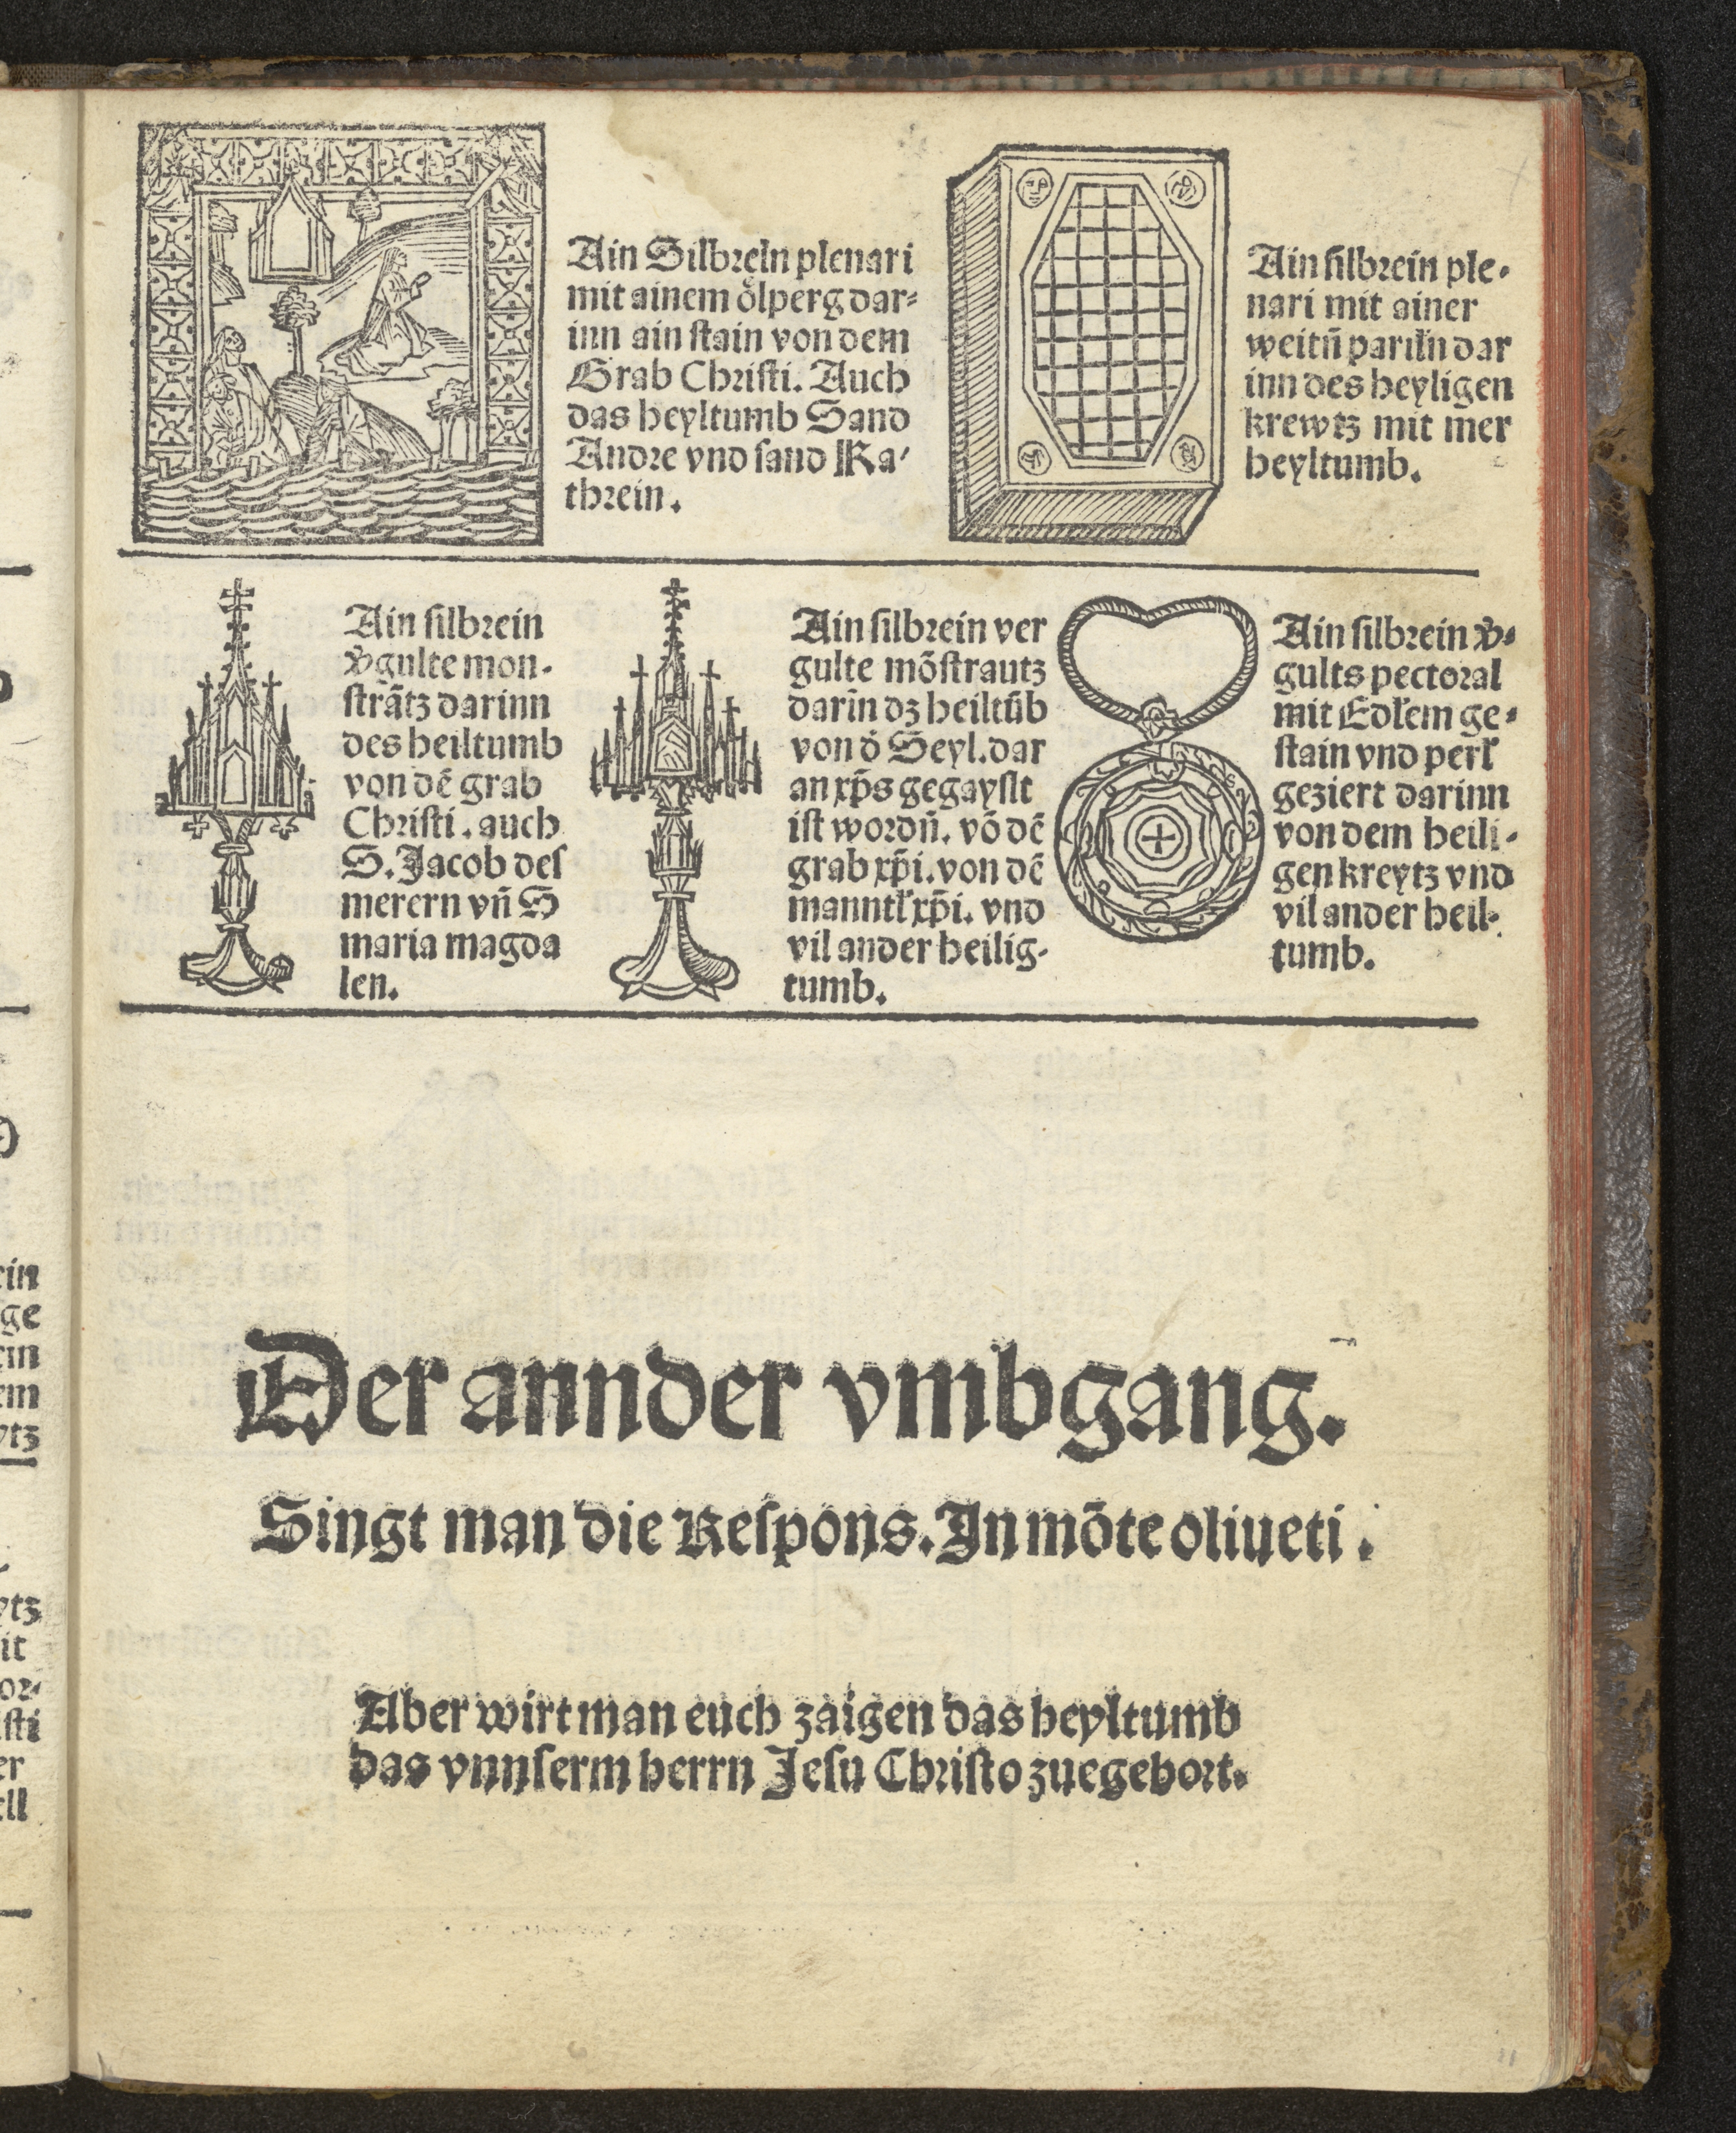 Ain Silbreln plenari
mit ainem ölperg dar⸗
inn ain stain von dem
Grab Christi. Auch
das heyltumb Sand
Andre vnd sand Ka⸗
threin.
Ain silbrein ple⸗
nari mit ainer
weitñ parıłn dar
inn des heyligen
krewtz mit mer
heyltumb.
Ain silbrein
v̄gulte mon⸗
strãtz darinn
des heiltumb
von dẽ grab
Christi. auch
S. Jacob des
merern vñ S
maria magda
len.
Ain silbrein ver
gulte mõstrautz
darĩn dz heiltũb
von d̊ Seyl. dar
an xp̃s gegayslt
ist wordñ. võ dẽ
grab xp̃i. von dẽ
manntł xp̃i. vnd
vil ander heilig⸗
tumb.
Ain silbrein v̄⸗
gults pectoral
mit Edłem ge⸗
stain vnd perł
geziert darinn
von dem heili⸗
gen kreytz vnd
vil ander heil⸗
tumb.
Der annder vmbgang.
Singt man die Respons. In mõte oliueti.
Aber wirt man euch zaigen das heyltumb
das vnnserm herrn Jesu Christo zuegehort.
ein
ge
ein
em
ytz
ytz
it
or⸗
sti
er
ell